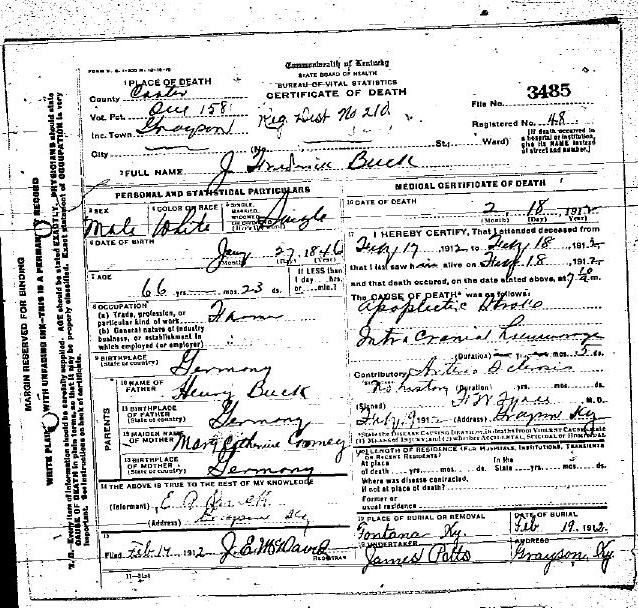 FORM V. S. 1-200 M. 12-16-10
Commonwealth of Kentucky
STATE BOARD OF HEALTH
BUREAU OF VITAL STATISTICS
CERTIFICATE OF DEATH
1 PLACE OF DEATH
County Carter
Vot. Pct. 158
Inc. Town Grayson
Reg. Dist No 210
City
(No. St.: Ward)
File No. 3485
Registered No. 48
[If death occurred in a hospital or institution, give its NAME instead of street and number.]
2 FULL NAME J Frederick Buck
PERSONAL AND STATISTICAL PARTICULARS
3 SEX Male
4 COLOR OR RACE White
5 SINGLE, MARRIED, WIDOWED, OR DIVORCED Single
6 DATE OF BIRTH Jany 27, 1846
(Month) (Day) (Year)
7 AGE 66 yrs. mos. 23 ds.
If LESS than 1 day hrs. or min.?
8 OCCUPATION
(a) Trade, profession, or particular kind of work
(b) General nature of industry business, or establishment in which employed (or employer)
9 BIRTHPLACE
(State or country) Germany
PARENTS
10 NAME OF FATHER Henry Buck
11 BIRTHPLACE OF FATHER
(State or country) Germany
12 MAIDEN NAME OF MOTHER Mary Catherine
13 BIRTHPLACE OF MOTHER
(State or country) Germany
14 THE ABOVE IS TRUE TO THE BEST OF MY KNOWLEDGE
(Informant)
(Address) Grayson Ky
15
Filed Feb 19, 1912 J. E. McDavid
REGISTRAR
11-3184
MEDICAL CERTIFICATE OF DEATH
16 DATE OF DEATH 2 18, 1912
(Month) (Day) (Year)
17 I HEREBY CERTIFY, That I attended deceased from
Feby 17 1912, to Feby 18, 1912,
that I last saw him alive on Feby 18, 1912,
and that death occured, on the date stated above, at 7 10 a m.
The CAUSE OF DEATH was as follows:
Apoplectic Stroke
Intra cranial
(Duration) yrs. mos. ds.
Contributory
(Duration) yrs. mos. ds.
(Signed) M. D.
1912 (Address) Grayson Ky
18 LENGTH OF RESIDENCE (FOR HOSPITALS, INSTITUTIONS, TRANSIENTS OR RECENT RESIDENTS)
At place of death yrs. mos. ds.
In the State yrs. mos. ds.
Where was disease contracted, if not at place of death?
Former or usual residence
19 PLACE OF BURIAL OR REMOVAL
Fontana Ky.
DATE OF BURIAL
Feb 19, 1912
20 UNDERTAKER
James Potts
ADDRESS
Grayson, Ky.
MARGIN RESERVED FOR BINDING
WRITE PLAINLY WITH UNFADING INK—THIS IS A PERMANENT RECORD
N. B.—Every item of information should be carefully supplied. AGE should be stated EXACTLY. PHYSICIANS should state CAUSE OF DEATH in plain terms, so that it may be properly classified. Exact statement of OCCUPATION is very important. See instructions on back of certificate.